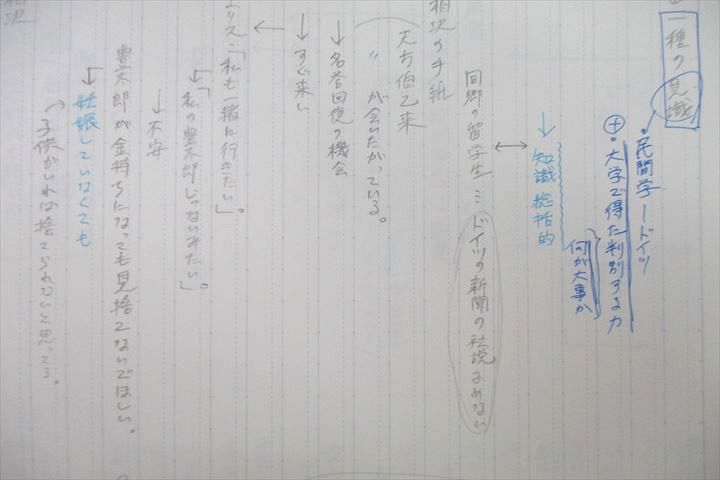 一種の見識
・民間学ードイツ
⊕・大学で得た判別する力
何が大事か
↓知識総括的
↕
同郷の留学生…ドイツの新聞の社説よめない
相沢の手紙
天方伯乙来
〃が会いたがっている。
↓名誉回復の機会
↓すぐ来い
↓
エリス「私も一緒に行きたい」。
↓「私の豊太郎じゃないみたい」。
↓不安
豊太郎が金持ちになっても見捨てないでほしい。
↓妊娠していなくても
子供がいれば捨てられないと思ってる。
相沢